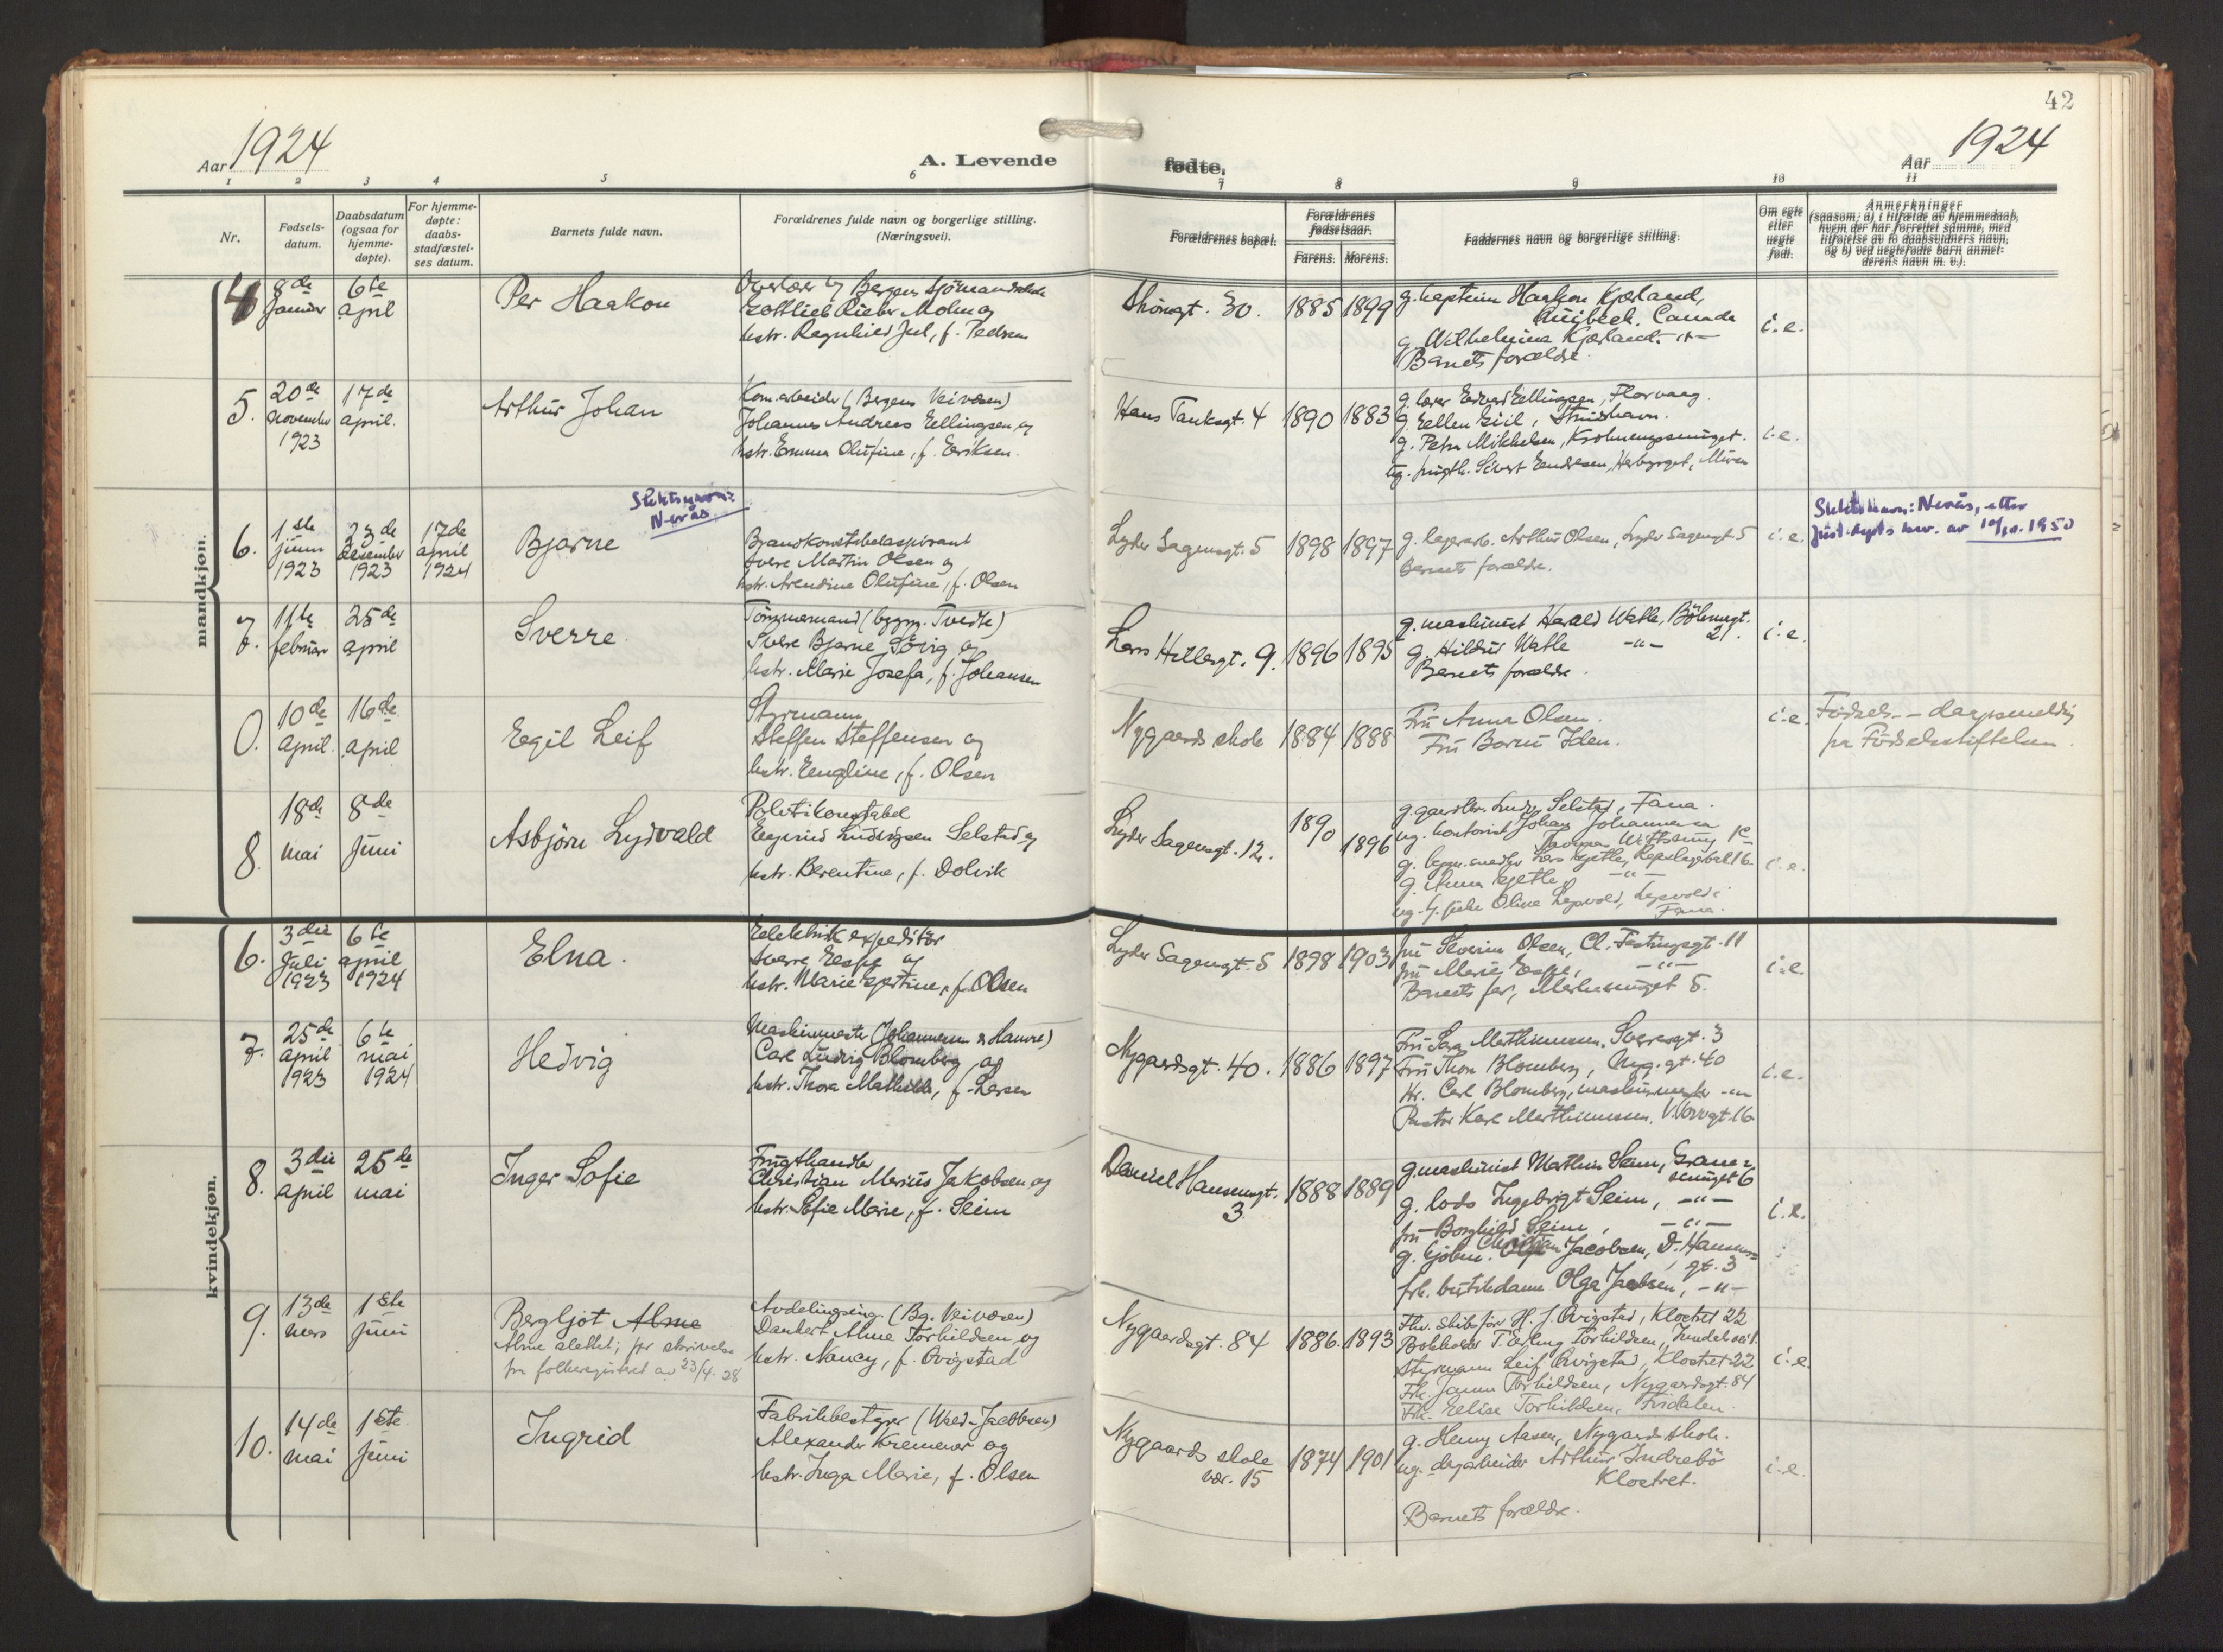 42
Aar 1924
A. Levende
fødte.
Aar 1924
1 2 3 4 5 6 7 8 9 10 11
Nr.
Fødsels-
datum.
Daabsdatum
(ogsaa for
hjemme-
døpte).
For hjemme-
døpte:
daabs-
stadfæstel-
ses datum.
Barnets fulde navn.
Forældrenes fulde navn og borgerlige stilling.
(Næringsvei).
Forældrenes bopæl.
Forældrenes
fødselsaar.
Farens. Morens.
Faddernes navn og borgerlige stilling.
Om egte
eller
uegte
født.
Anmerkninger
(saasom; a) i tilfælde av hjemmedaab,
hvem der har forrettet samme, med
tilføielse av to daabsvidners navn,
og b) ved uegtefødte barn anmel-
derens navn m. v.).
mandkjøn.
4
8de
januar
6te
april
Per Haakon
Gottlieb Rieber Mohn og
hstr. Ragnhild Jul, f. Pedersen
30.
1885 1899
g. kaptein Haakon Kjærland,
Canada
g. Wilhelmina Kjærland -"-
Barnets forældre.
i.e.
5.
20de
november
1923
17de
april.
Arthur Johan
Kom.arbeider (Bergens Veivæsen)
Johannes Andreas Ellingsen og
hstr. Emma Olufine, f. Eriksen.
Hans Tanksgt. 4
1890 1883
g. lærer Edvard Ellingsen, Florvaag.
g. Ellen
g. Petra Mikkelsen, Krohnengsmuget.
i.e.
6.
1ste
juni
1923
23de
desember
1923
17de
april
1924
Bjarne
Slektsnavn:
Nerås
Brandkonstabelaspirant
Sverre Martin Olsen og
hstr. Arendine Olufine, f. Olsen
Lyder Sagensgt. 5
1898 1897
g. lagerarb. Arthur Olsen, Lyder Sagensgt. 5
Barnets forældre.
i.e.
Slektsnavn: Nerås, etter
Just.depts bev. av 10/10.1950
7.
11te
februar
25de
april
Sverre
Tømmermand (bygm. Tvedte)
Sverre Bjarne Sörvig og
hstr. Marie Josefa, f. Johansen
Lars Hillesgt. 9.
1896 1895
g. maskinist Harald Watle, Böhmergt.
21.
g. Hildur Watle -"-
Barnets forældre.
i.e.
0.
10de
april.
16de
april
Egil Leif
Styrmann
Steffen Steffensen og
hstr. Engline, f. Olsen
Nygaards skole
1884 1888
Fru Anna Olsen.
Fru Iden.
i.e.
Fødsels- - daapsmelding
fra Fødselsstiftelsen.
8.
18de
mai
8de
juni
Asbjörn Lydvald
Politikonstabel
Ludvigsen Selstad og
hstr. Berentine, f. Dolvik
Lyder Sagensgt. 12.
1890
1896
g. gaardbr. Selstad, Fana.
ug. kontorist Johan Johannesen
g. Anna -"-
Fana.
i.e.
kvindekjøn.
6.
3die
juli
1923
6te
april
1924
Elna.
Elektrik expeditör
Sverre Espe og
hstr. Marie Gjertine, f. Olsen
Lyder Sagensgt. 5
1898 1903
fru Severin Olsen, Cl. Festningsgt. 11
fru Marie Espe, -"-
Barnets far, 5.
i.e.
7.
25de
april
1923
6te
mai
1924
Hedvig
Maskinmester (Johannesen & Hamre)
Carl Ludvig Blomberg og
hstr. Thora Mathilde, f. Larsen
Nygaardsgt. 40.
1886 1897
Fru Sara Marthinussen, Sverresgt. 3
Fru Thora Blomberg, Nyg.gt. 40
Hr. Carl Blomberg, maskinmester -"-
Pastor Karl Marthinussen,
i.e.
8.
3die
april
25de
mai
Inger Sofie
Frugthandler
Christian Marius Jakobsen og
hstr. Sofie Marie, f. Seim
Daniel Hansensgt.
3
1888 1889
g. maskinist Mathias Seim,
smuget 6
g. lods Ingebrigt Seim, -"-
fru Borghild Seim, -"-
g. kjøbm. Christian Jacobsen, D. Hansens-
gt. 3
frk. butikdame Olga Jacobsen, -"-
i.e.
9.
13de
mars
1ste
juni
Bergljot Alme
Alme slettet; jfr skrivelse
fra folkeregisteret av 23/4.28
Avdelingsing. (Bg. Veivæsen)
Dankert Alme Torkildsen og
hstr. Nancy, f. Qvigstad
Nygaardsgt. 84
1886. 1893
Fhv. skibsfør H. J. Qvigstad, Klostret 22
Bokholder T. Erling Torkildsen,
Styrmann Leif Qvigstad, Klostret 22
Frk. Torkildsen, Nygaardsgt. 84
Frk. Elise Torkildsen, Fridalen.
i.e.
10.
14de
mai
1ste
juni
Ingrid
Fabrikbestyrer
Alexander Kremener og
hstr. Inga Marie, f. Olsen
Nygaards skole
vær. 15
1874 1901
g. Henny Aasen, Nygaards skole.
ug. dagarbeider Arthur Indrebö
Klostret.
Barnets forældre.
i.e.